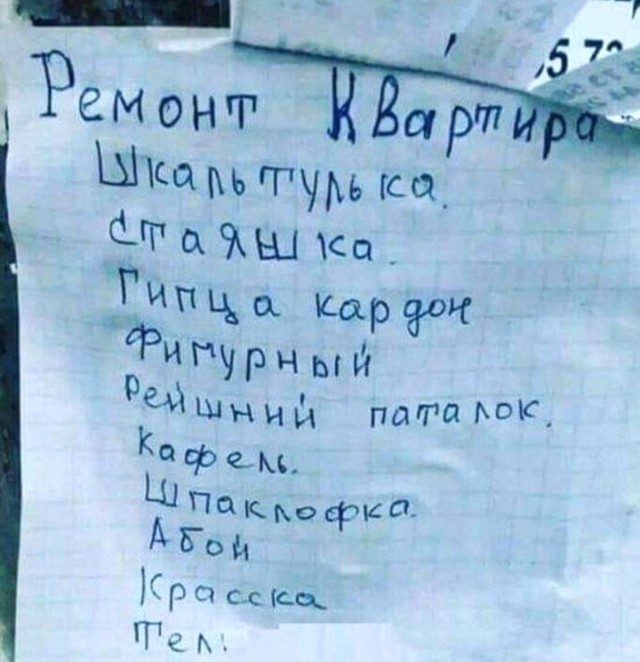 5 72
Ремонт Квартира
Шкальтулька.
стаяшка.
Гипца кардон
Фигурный
Рейшний паталок.
Кафель.
Шпаклофка.
Абой
Красска
Тел: